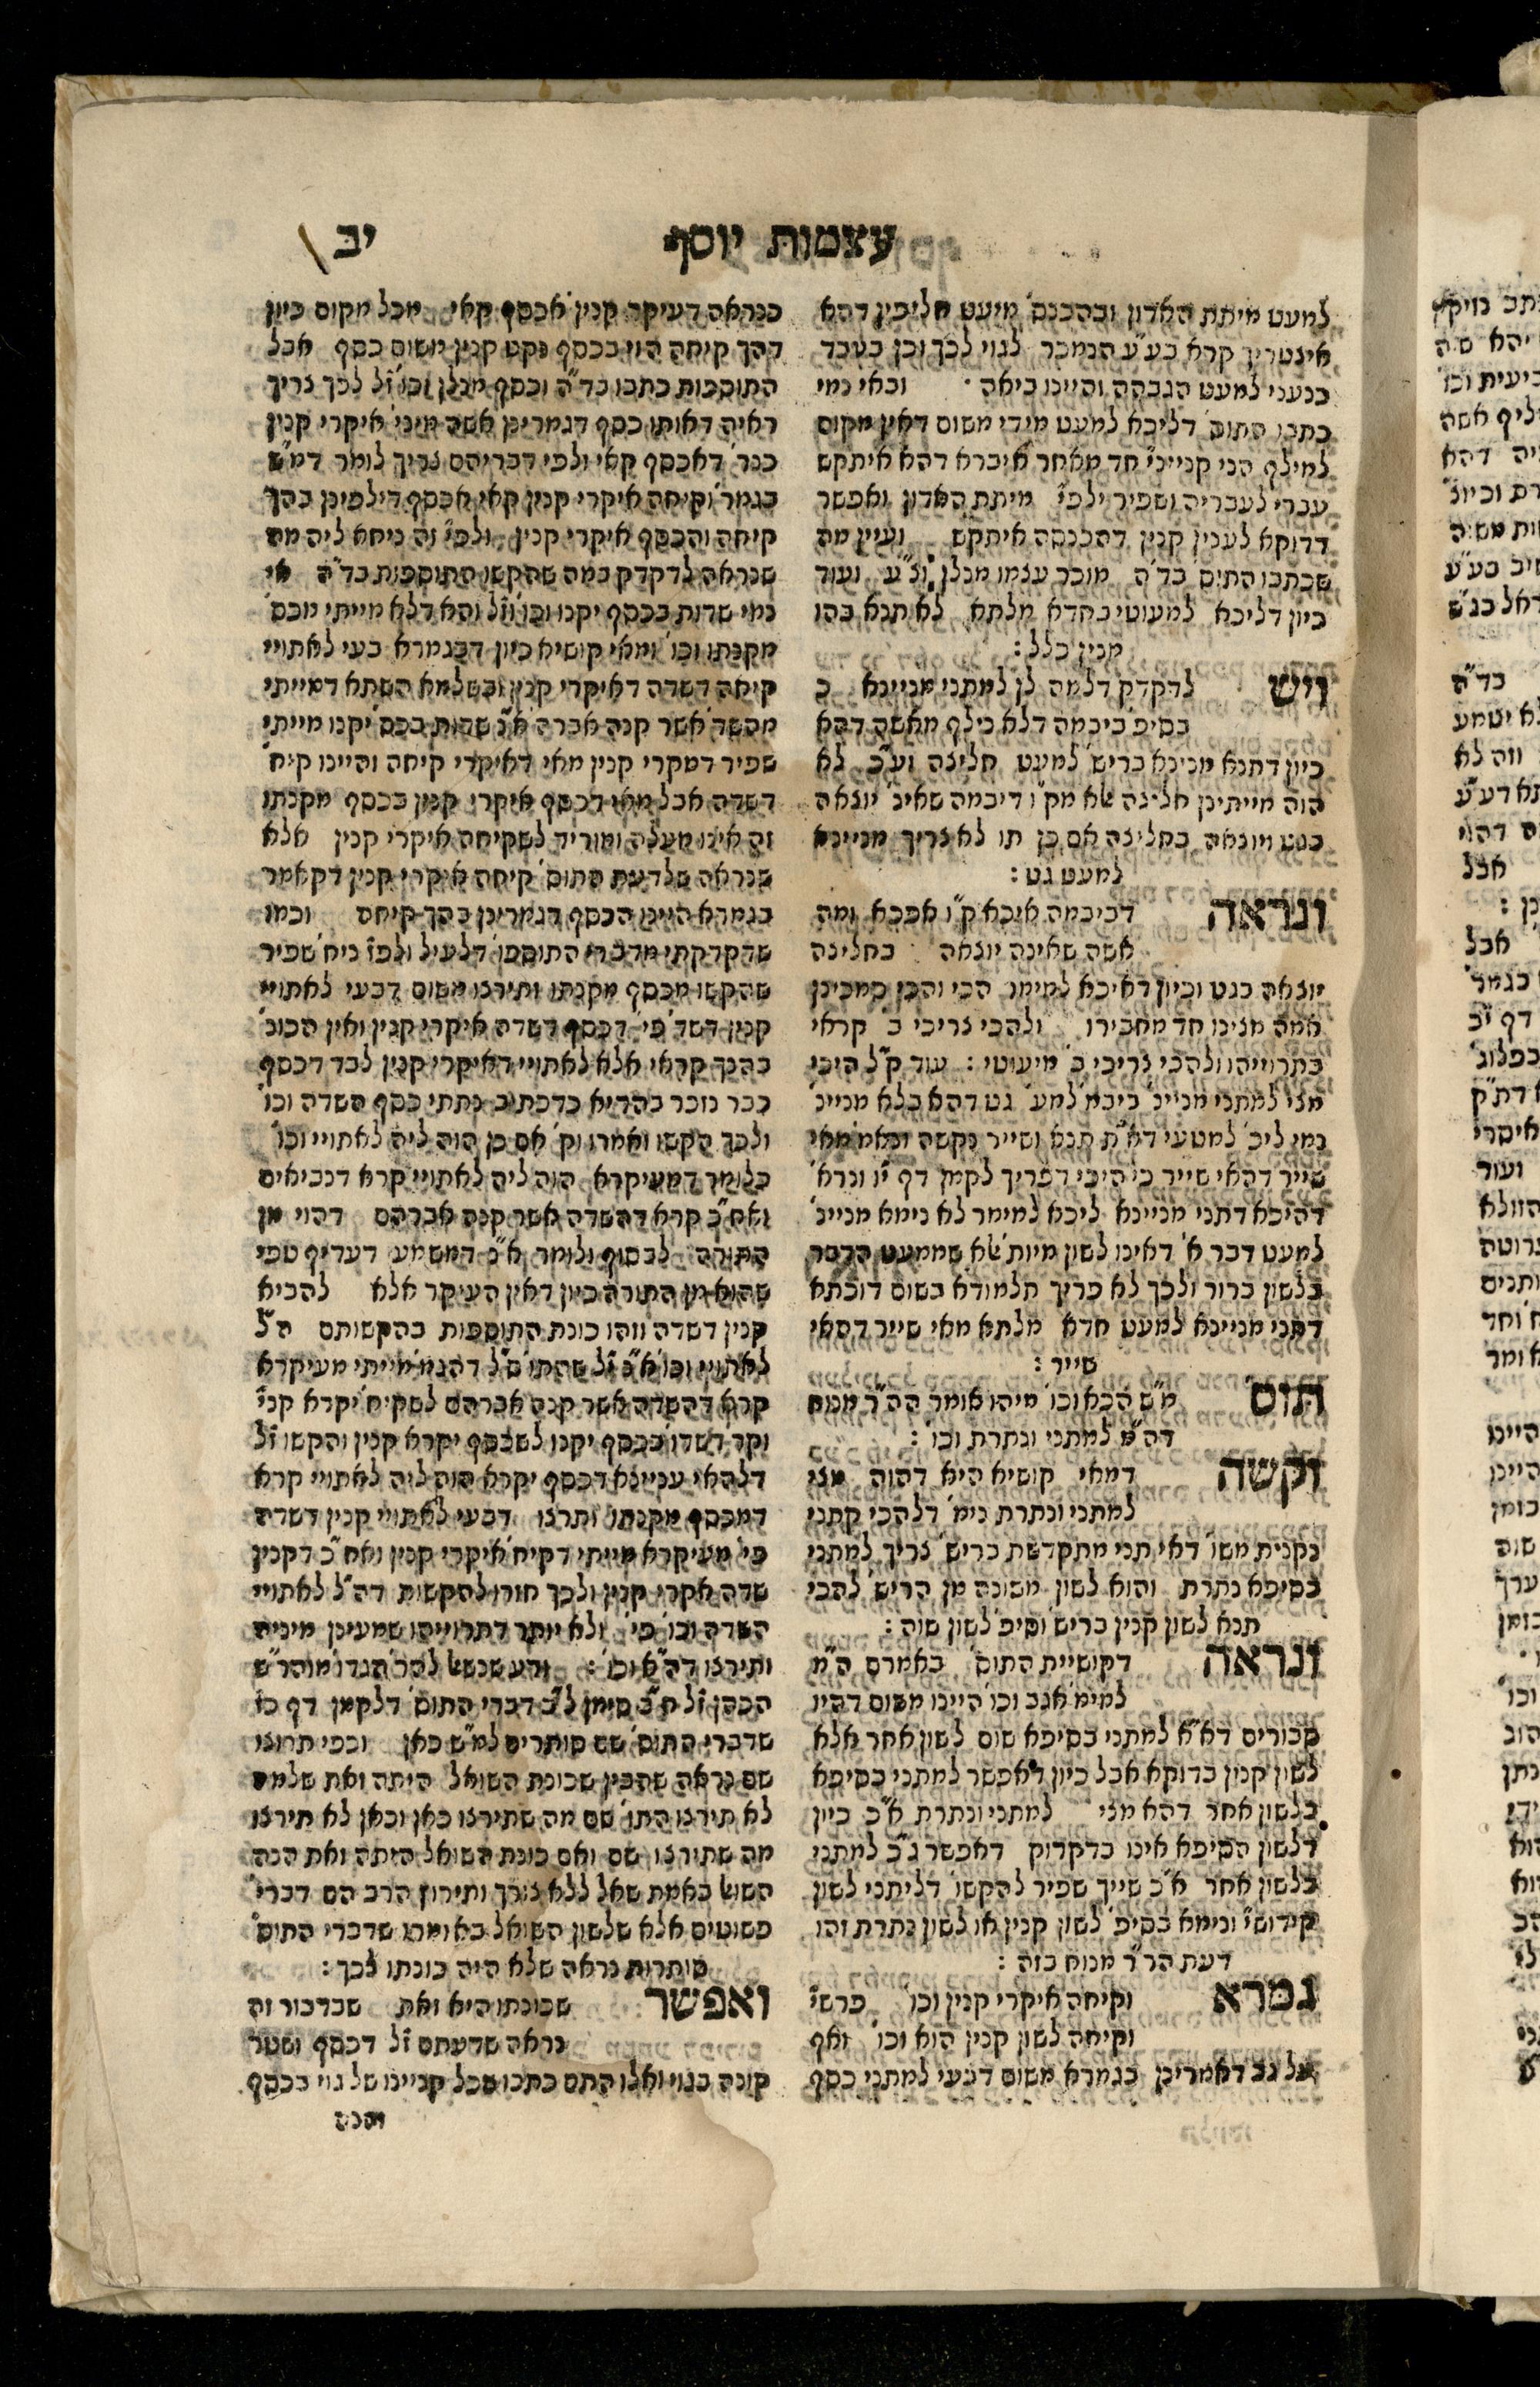 עצמות יוסף
יב
למעט מיתת האדון ובהכנס' מיעט חליפין דהא
איצטריך קרא בע"ע הנמכר לגוי לכך וכן בעבד
כנעני למעט הגבהה והיינו ביאה · ובאי נמי
כתבו התוס' דליכא למעט מידי משום דאין מקום
למילף הני קנייני חד מאחר איברא דהא איתקש
עברי לעבריה ושפיר ילפי' מיתת האדון ואפשר
דדוקא לענין קנין דהכנסה איתקש ועיין מה
שכתבו התוס' בד"ה מוכר עצמו מנלן וצ"ע ועוד
כיון דליכא למעוטי בחדא מלתא לא תנא בהו
מנין כלל :
ויש לדקדק דלמה לן למתני מניינא כ
בסיפ' ביבמה דלא נילף מאשה דהא
כיון דתנא מנינא בריש' למעט חליצה וע"כ לא
הוה מייתינן חליצה אלא מק"ו דיבמה שאינ' יוצאה
בגט ויוצאה בחליצה אם כן תו לא צריך מניינא
למעט גט :
ונראה דביבמה איכא ק"ו אפכא ומה
אשה שאינה יוצאה בחליצה
יוצאה בגט וכיון דאיכא למימר הכי והכן סמכינן
אמה מצינו חד מחבירו ולהכי צריכי ב' קראי
בתרוייהו ולהכי צריכי ב' מיעוטי : עוד ק"ל היכי
מצי למתני מניינ' ביבמ' למע' גט דהא בלא מניינ'
נמי ליכ' למטעי דא"ת תנא ושייר נקשה ונאמ' מאי
שייר דהאי שייר כי היכי דפריך לקמן דף י"ו ונרא'
דהיכא דתני מניינא ליכא למימר לא נימא מניינ'
למעט דבר א' דאינו לשון מיות' אלא שממעט הדבר
בלשון ברור ולכך לא פריך תלמודא בשום דוכתא
דתני מניינא למעט חדא מלתא מאי שייר דהאי
שייר :
תוס' מ"ש הכא וכו' מיהו אומר הה"ר מנוח
דה"מ למתני ונתרת וכו' :
וקשה דמאי קושיא היא דהוה מצי
למתני ונתרת נימ' דלהכי קתני
נקנית משו' דאי תני מתקדשת בריש' צריך למתני
בסיפא נתרת והוא לשון משונה מן הריש' להכי
תנא לשון קנין בריש' וסיפ' לשון שוה :
ונראה דקושיית התוס' באמרם ה"מ
למימ' אגב וכו' היינו משום דהיו
סבורים דא"א למתני בסיפא שום לשון אחר אלא
לשון קנין בדוקא אבל כיון דאפשר למתני בסיפא
בלשון אחר דהא מצי למתני ונתרת א"כ כיון
דלשון הסיפא אינו בדקדוק דאפשר ג"כ למתני
בלשון אחר א"כ שייך שפיר להקשו' דליתני לשון
קידושי' ונימא בסיפ' לשון קנין או לשון נתרת זהו
דעת הר"ר מנוח בזה :
גמרא וקיחה איקרי קנין וכו' פרש"י
וקיחה לשון קנין הוא וכו' ואף
על גב דאמרינן בגמרא משום דבעי למתני כסף
כנראה דעיקר קנין אכסף קאי מכל מקום כיון
דהך קיחה הוי בכסף נקט קנין משום כסף אבל
התוספות כתבו בד"ה וכסף מנלן וכו' ז"ל לכך צריך
ראיה דאותו כסף דגמרינן אשה מיני' איקרי קנין
כנר' דאכסף קאי ולפי דבריהם צריך לומר דמ"ש
בגמר' וקיחה איקרי קנין קאי אכסף דילפינן בהך
קיחה והכסף איקרי קנין ולפי' זה ניחא ליה מה
שנראה לדקדק במה שהקשו התוספות בד"ה אי
נמי שדות בכסף יקנו וכו' וז"ל והא דלא מייתי מכס'
מקנתו וכו' ומאי קושיא כיון דבגמרא בעי לאתויי
קיחה דשדה דאיקרי קנין ובשלמא השתא דמייתי
מהשד' אשר קנה אברה' א"נ שדות בכס' יקנו מייתי
שפיר דמקרי קנין מאי דאיקרי קיחה והיינו קיח'
דשדה אבל מאי דכסף איקרי קנין בכסף מקנתו
זה אינו מעלה ומוריד לשקיחה איקרי קנין אלא
שנראה שלדעת התוס' קיחה איקרי קנין דקאמר
בגמרא היינו הכסף דגמרינן בהך קיחה וכמו
שדקדקתי מדברי התוספו' דלעיל ולפ"ז ניח' שפיר
שהקשו מכסף מקנתו ותירצו משום דבעי לאתויי
קנין דשד' פי' דכסף דשדה איקרי קנין ואין הכונ'
בהנך קראי אלא לאתויי דאיקרי קנין לבד דכסף
כבר נזכר בהדיא כדכתיב נתתי כסף השדה וכו'
ולכך הקשו ואמרו וק' אם כן הוה ליה לאתויי וכו'
כלומר דמעיקרא הוה ליה לאתויי קרא דנביאים
ואח"כ קרא דהשדה אשר קנה אברהם דהוי מן
התורה לבסוף ולומר א"נ דמשמע דעדיף טפי
שהוא מן התורה כיון דאין העיקר אלא להביא
קנין דשדה וזהו כונת התוספות בהקשותם ה"ל
לאתויי וכו' א"כ ז"ל שהתו' ס"ל דהגמ' מייתי מעיקרא
קרא דהשדה אשר קנה אברהם לשקיח' יקרא קני'
וקר' דשדו' בכסף יקנו לשכסף יקרא קנין והקשו ז"ל
דלהאי עניינא דכסף יקרא הוה ליה לאתויי קרא
דמכסף מקנתו ותרצו דבעי לאתויי קנין דשדה
פי' מעיקרא מייתי דקיח' איקרי קנין ואח"כ דקנין
שדה אקרי קנין ולכך חזרו להקשות דה"ל לאתויי
השדה וכו' פי' ולא יותר דתרוייהו שמעינן מיניה
ותירצו דה"א וכו' : ודע שנשאל להר' הגדו' מוהר"ש
הכהן ז"ל ח"ב סימן ל"ב דברי התוס' דלקמן דף כו
שדברי התוס' שם סותרים למ"ש כאן וכפי תרוצו
שם נראה שהבין שכונת השואל היתה זאת שלמה
לא תירצו התו' שם מה שתירצו כאן וכאן לא תירצו
מה שתירצו שם ואם כונת השואל היתה זאת הנה
השוא' באמת שאל ללא צורך ותירוץ הרב הם דברי'
פשוטים אלא שלשון השואל באומרו שדברי התוס'
סותרות נראה שלא היה כונתו לכך :
ואפשר שכונתו היא זאת שבדבור זה
נראה שדעתם ז"ל דכסף ושטר
קונה בגוי ואלו התם כתבו שכל קניינו של גוי בכסף